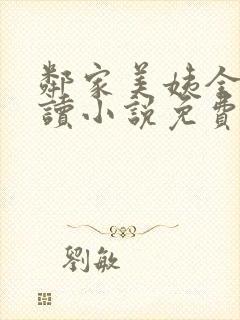 鄰家美姨全
讀小說免費
劉敏